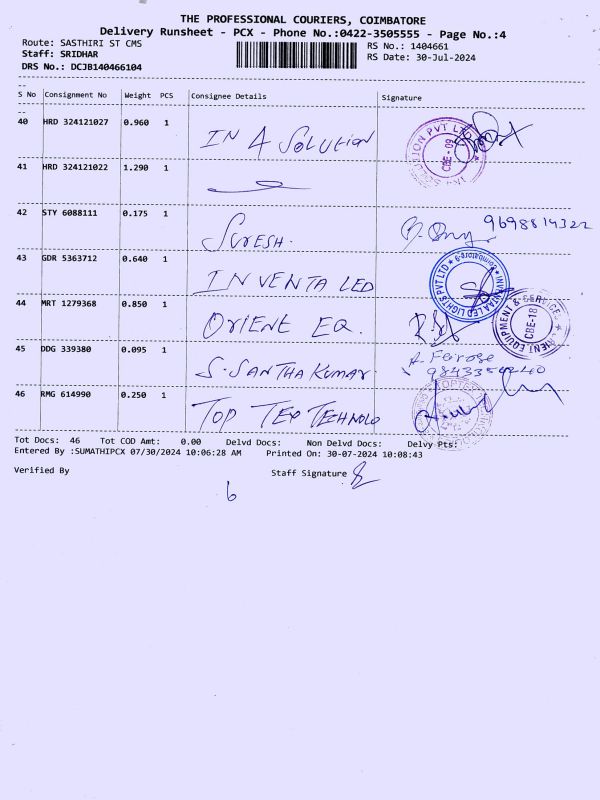 THE PROFESSIONAL COURIERS, COIMBATORE
Delivery Runsheet - PCX - Phone No.:0422-3505555 - Page No.:4
Route: SASTHIRI ST CMS
Staff: SRIDHAR
DRS No.: DCJB140466104
RS No.: 1404661
RS Date: 30-Jul-2024
S No Consignment No Weight PCS Consignee Details Signature
40 HRD 324121027 0.960 1 IN A SOLUTION
SOLUTION PVT LTD CBE - 09
41 HRD 324121022 1.290 1
42 STY 6088111 0.175 1 SURESH. 9698814322
43 GDR 5363712 0.640 1 INVENTA LED
INVENTAA LED LIGHTS PVT LTD Coimbatore-9
44 MRT 1279368 0.850 1 ORIENT EQ.
EQUIPMENT & SERVICE CBE-18
45 DDG 339380 0.095 1 S. SANTHA KUMAR
R. Feirose
46 RMG 614990 0.250 1 TOP TEX TECHNOLO
Tot Docs: 46 Tot COD Amt: 0.00 Delvd Docs: Non Delvd Docs: Delvy Pts:
Entered By :SUMATHIPCX 07/30/2024 10:06:28 AM Printed On: 30-07-2024 10:08:43
Verified By Staff Signature
6